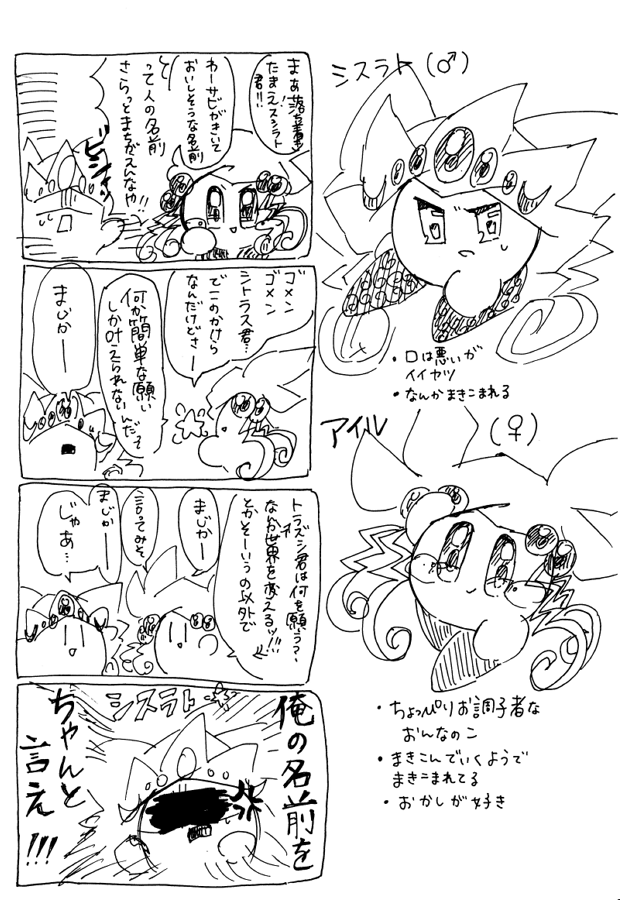 まあ落ち着き
たまえスシラト
君!!
わーサビがきいて
おいしそうな名前
って人の名前
さらっとまちがえんなや!!
ビシャ
ゴメン
ゴメン
シトラス君…
でこのかけら
なんだけどさー
何か簡単な願い
しか叶えられないんだって
まじかー
トラズシ君は何を願う?
なんか世界を変えるッ!!
とかそーいうの以外で
まじかー
言ってみそ
まじかー
じゃあ…
シスラト
俺の名前を
ちゃんと
言え!!!
シスラト(♂)
・口は悪いが
イイヤツ
・なんかまきこまれる
アイル(♀)
・ちょっぴりお調子者な
おんなのコ
・まきこんでいくようで
まきこまれてる
・おかしが好き